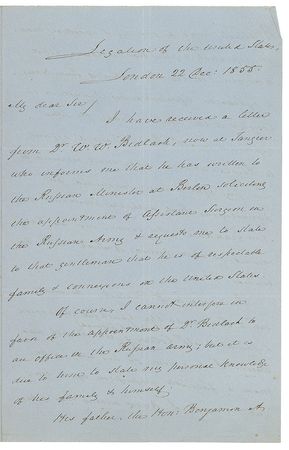 Legation of the United States,
London 22 Dec: 1855.
My dear Sir/
I have received a letter
from Dr. W. W. Bidlack, now at Tangier
who informs me that he has written to
the Russian Minister at Berlin soliciting
the appointment of Assistant Surgeon in
the Russian Army & requests me to state
to that gentleman that he is of respectable
family & connexions in the United States.
Of course, I cannot interfere in
favor of the appointment of Dr. Bidlack to
an office in the Russian army; but it is
due to him to state my personal knowledge
of his family & himself.
His father, the Hon: Benjamin A.